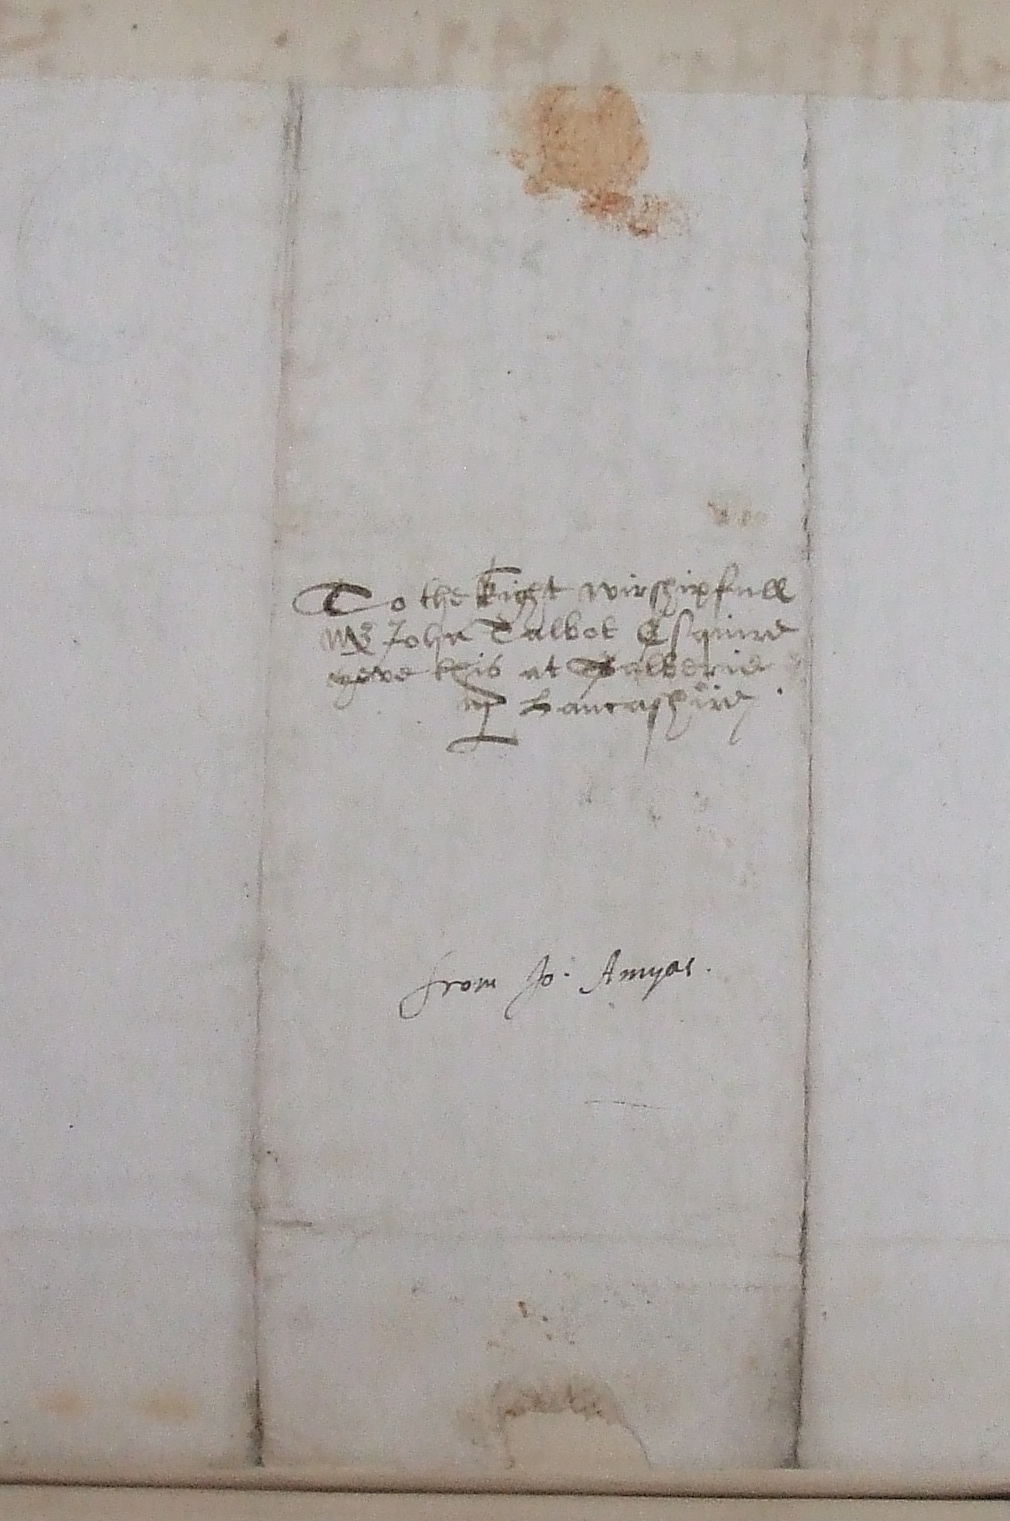 To the Right wirshipfull
Mr John Talbot Esquire
geve this at Salberie
in Lancashire
from Jo. Amyas.